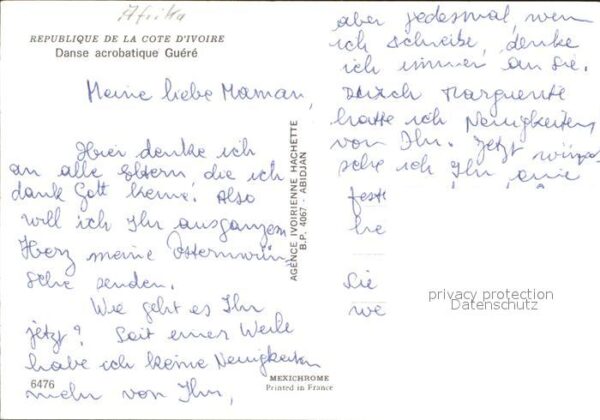 Afrika
REPUBLIQUE DE LA COTE D'IVOIRE
Danse acrobatique Guéré
Meine liebe Maman,
Hier denke ich
an alle Eltern, die ich
dank Gott kenne! Also
will ich Ihr aus ganzem
Herz meine Osternwün
sche senden.
Wie geht es Ihr
jetzt? Seit einer Weile
habe ich keine Neuigkeiten
mehr von Ihr,
6476
MEXICHROME
Printed in France
AGENCE IVOIRIENNE HACHETTE
B.P. 4067 - ABIDJAN
aber jedesmal, wenn
ich schreibe, denke
ich immer an Sie.
Durch Marguerite
hatte ich Neuigkeiten
von Ihr. Jetzt wün
sche ich Ihr, eine
feste
he
Sie
we
privacy protection
Datenschutz